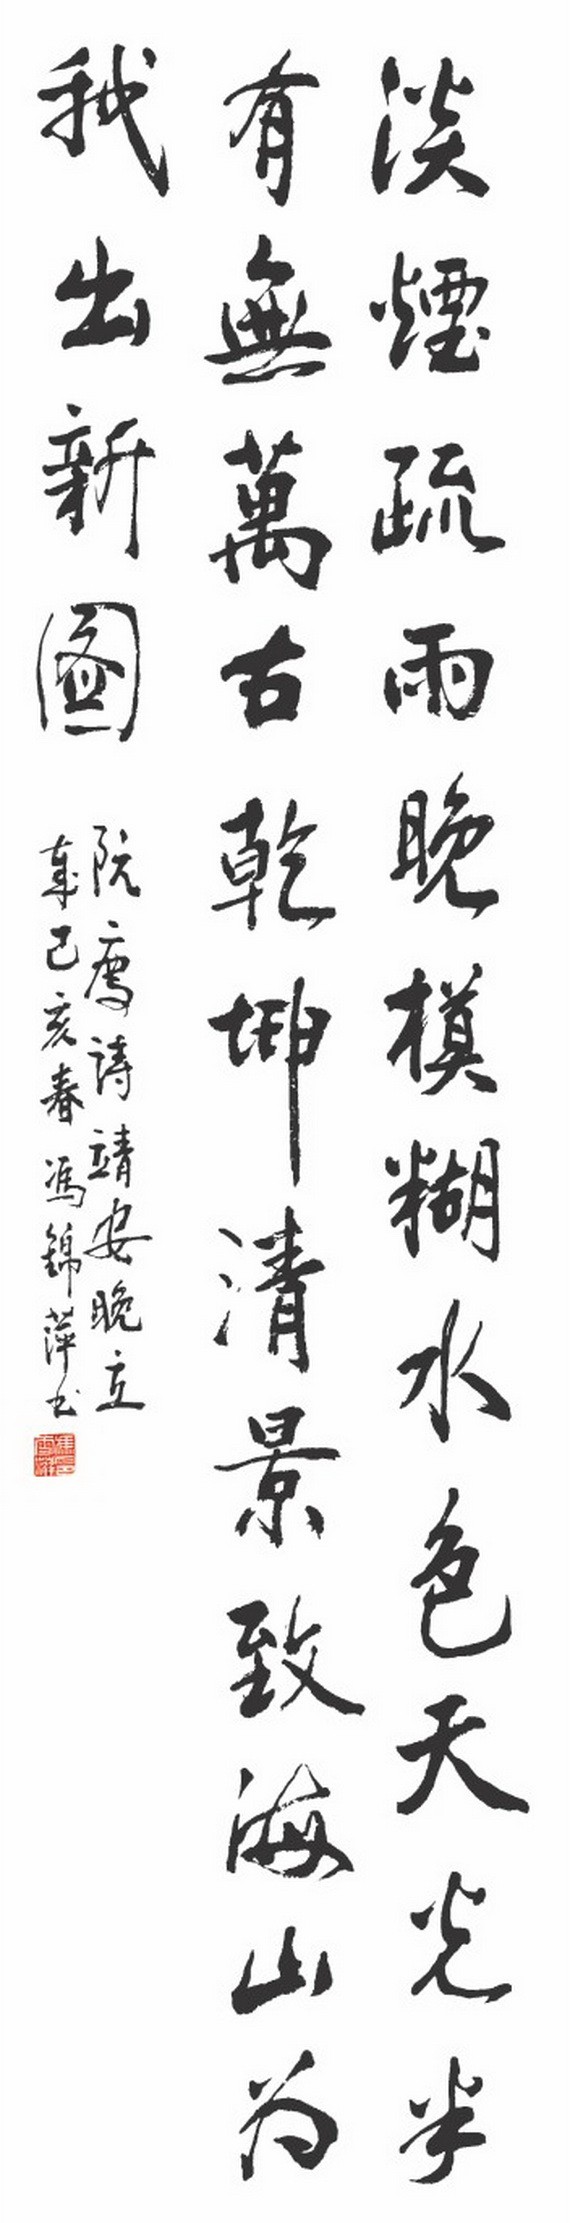 淡煙疏雨晚模糊水色天光半
有無萬古乾坤清景致海山为
我出新圖
阮詩靖安晚立
歲己亥春馮錦萍书